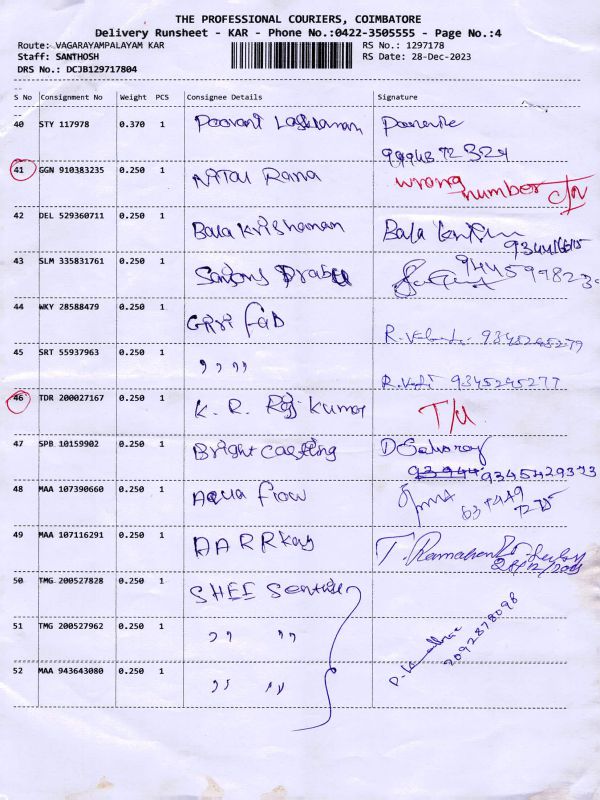 THE PROFESSIONAL COURIERS, COIMBATORE
Delivery Runsheet - KAR - Phone No.:0422-3505555 - Page No.:4
Route: VAGARAYAMPALAYAM KAR RS No.: 1297178
Staff: SANTHOSH RS Date: 28-Dec-2023
DRS No.: DCJB129717804
S No Consignment No Weight PCS Consignee Details Signature
40 STY 117978 0.370 1 Poovani
41 GGN 910383235 0.250 1 Rana wrong number
42 DEL 529360711 0.250 1 Bala Krishnaman Bala
43 SLM 335831761 0.250 1 Prabu
44 WKY 28588479 0.250 1 Giri Fab R. 9345245279
45 SRT 55937963 0.250 1 ,, ,, R. 9345245277
46 TDR 200027167 0.250 1 K. R. Raj Kumar
47 SPB 10159902 0.250 1 Bright casting 9345429373
48 MAA 107390660 0.250 1 Aqua Flow
49 MAA 107116291 0.250 1 AARRkay T.
28/12/2023
50 TMG 200527828 0.250 1 SHEE
51 TMG 200527962 0.250 1 ,, ,,
52 MAA 943643080 0.250 1 ,, ,,
2092878098